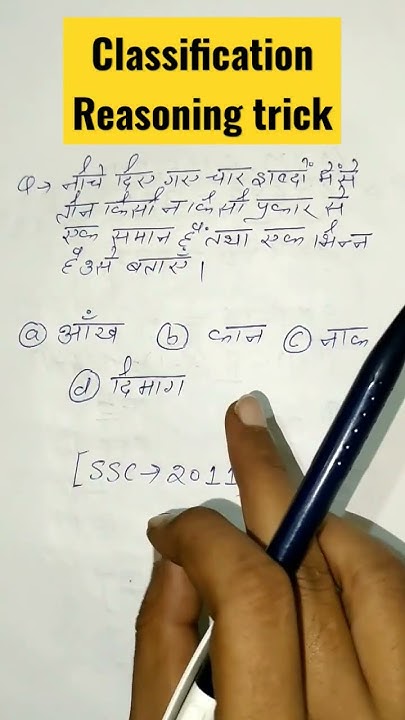 Classification
Reasoning trick
Q→ नीचे दिए गए चार शब्दों में से
तीन किसी न किसी प्रकार से
एक समान हैं तथा एक भिन्न
है उसे बताएँ।
ⓐ आँख ⓑ कान ⓒ नाक
ⓓ दिमाग
[SSC→2011